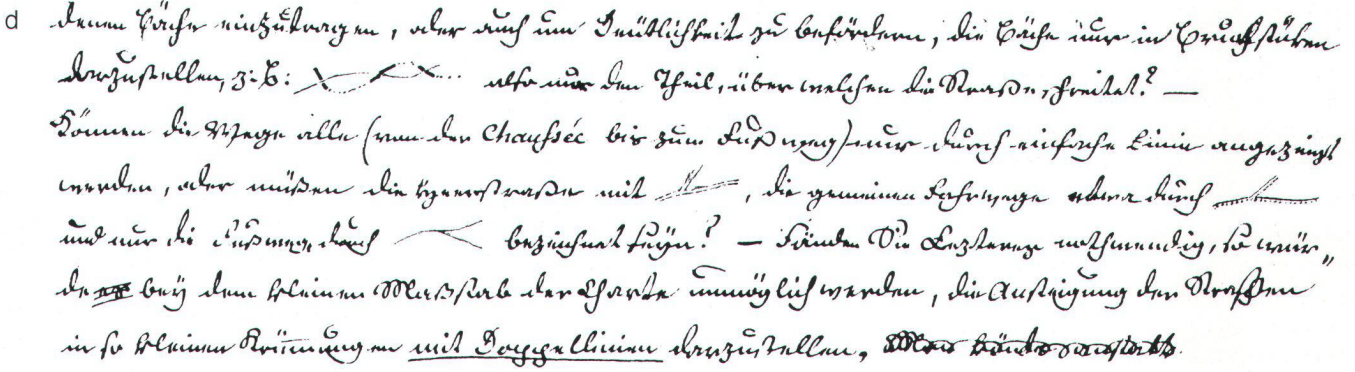 d denen Bäche einzutragen, oder auch um Deutlichkeit zu befördern, die Bäche nur in Bruchstüken
darzustellen, z. B: also nur den Theil, über welchen die Straße schreitet? —
Können die Wege alle (von der Chaussée bis zum Fußweg) nur durch einfache Linie angezeigt
werden, oder müßen die Heerstraße mit , die gemeinen Fahrwege etwa durch
und nur die Fußwege durch bezeichnet seyn? — Fänden Sie Lezteres nothwendig, so wür„
de er bey dem kleinen Maßstab der Charte unmöglich werden, die Ansteigung der Straßen
in so kleinen Krümmungen mit Doppellinien darzustellen. Man könte anstatt